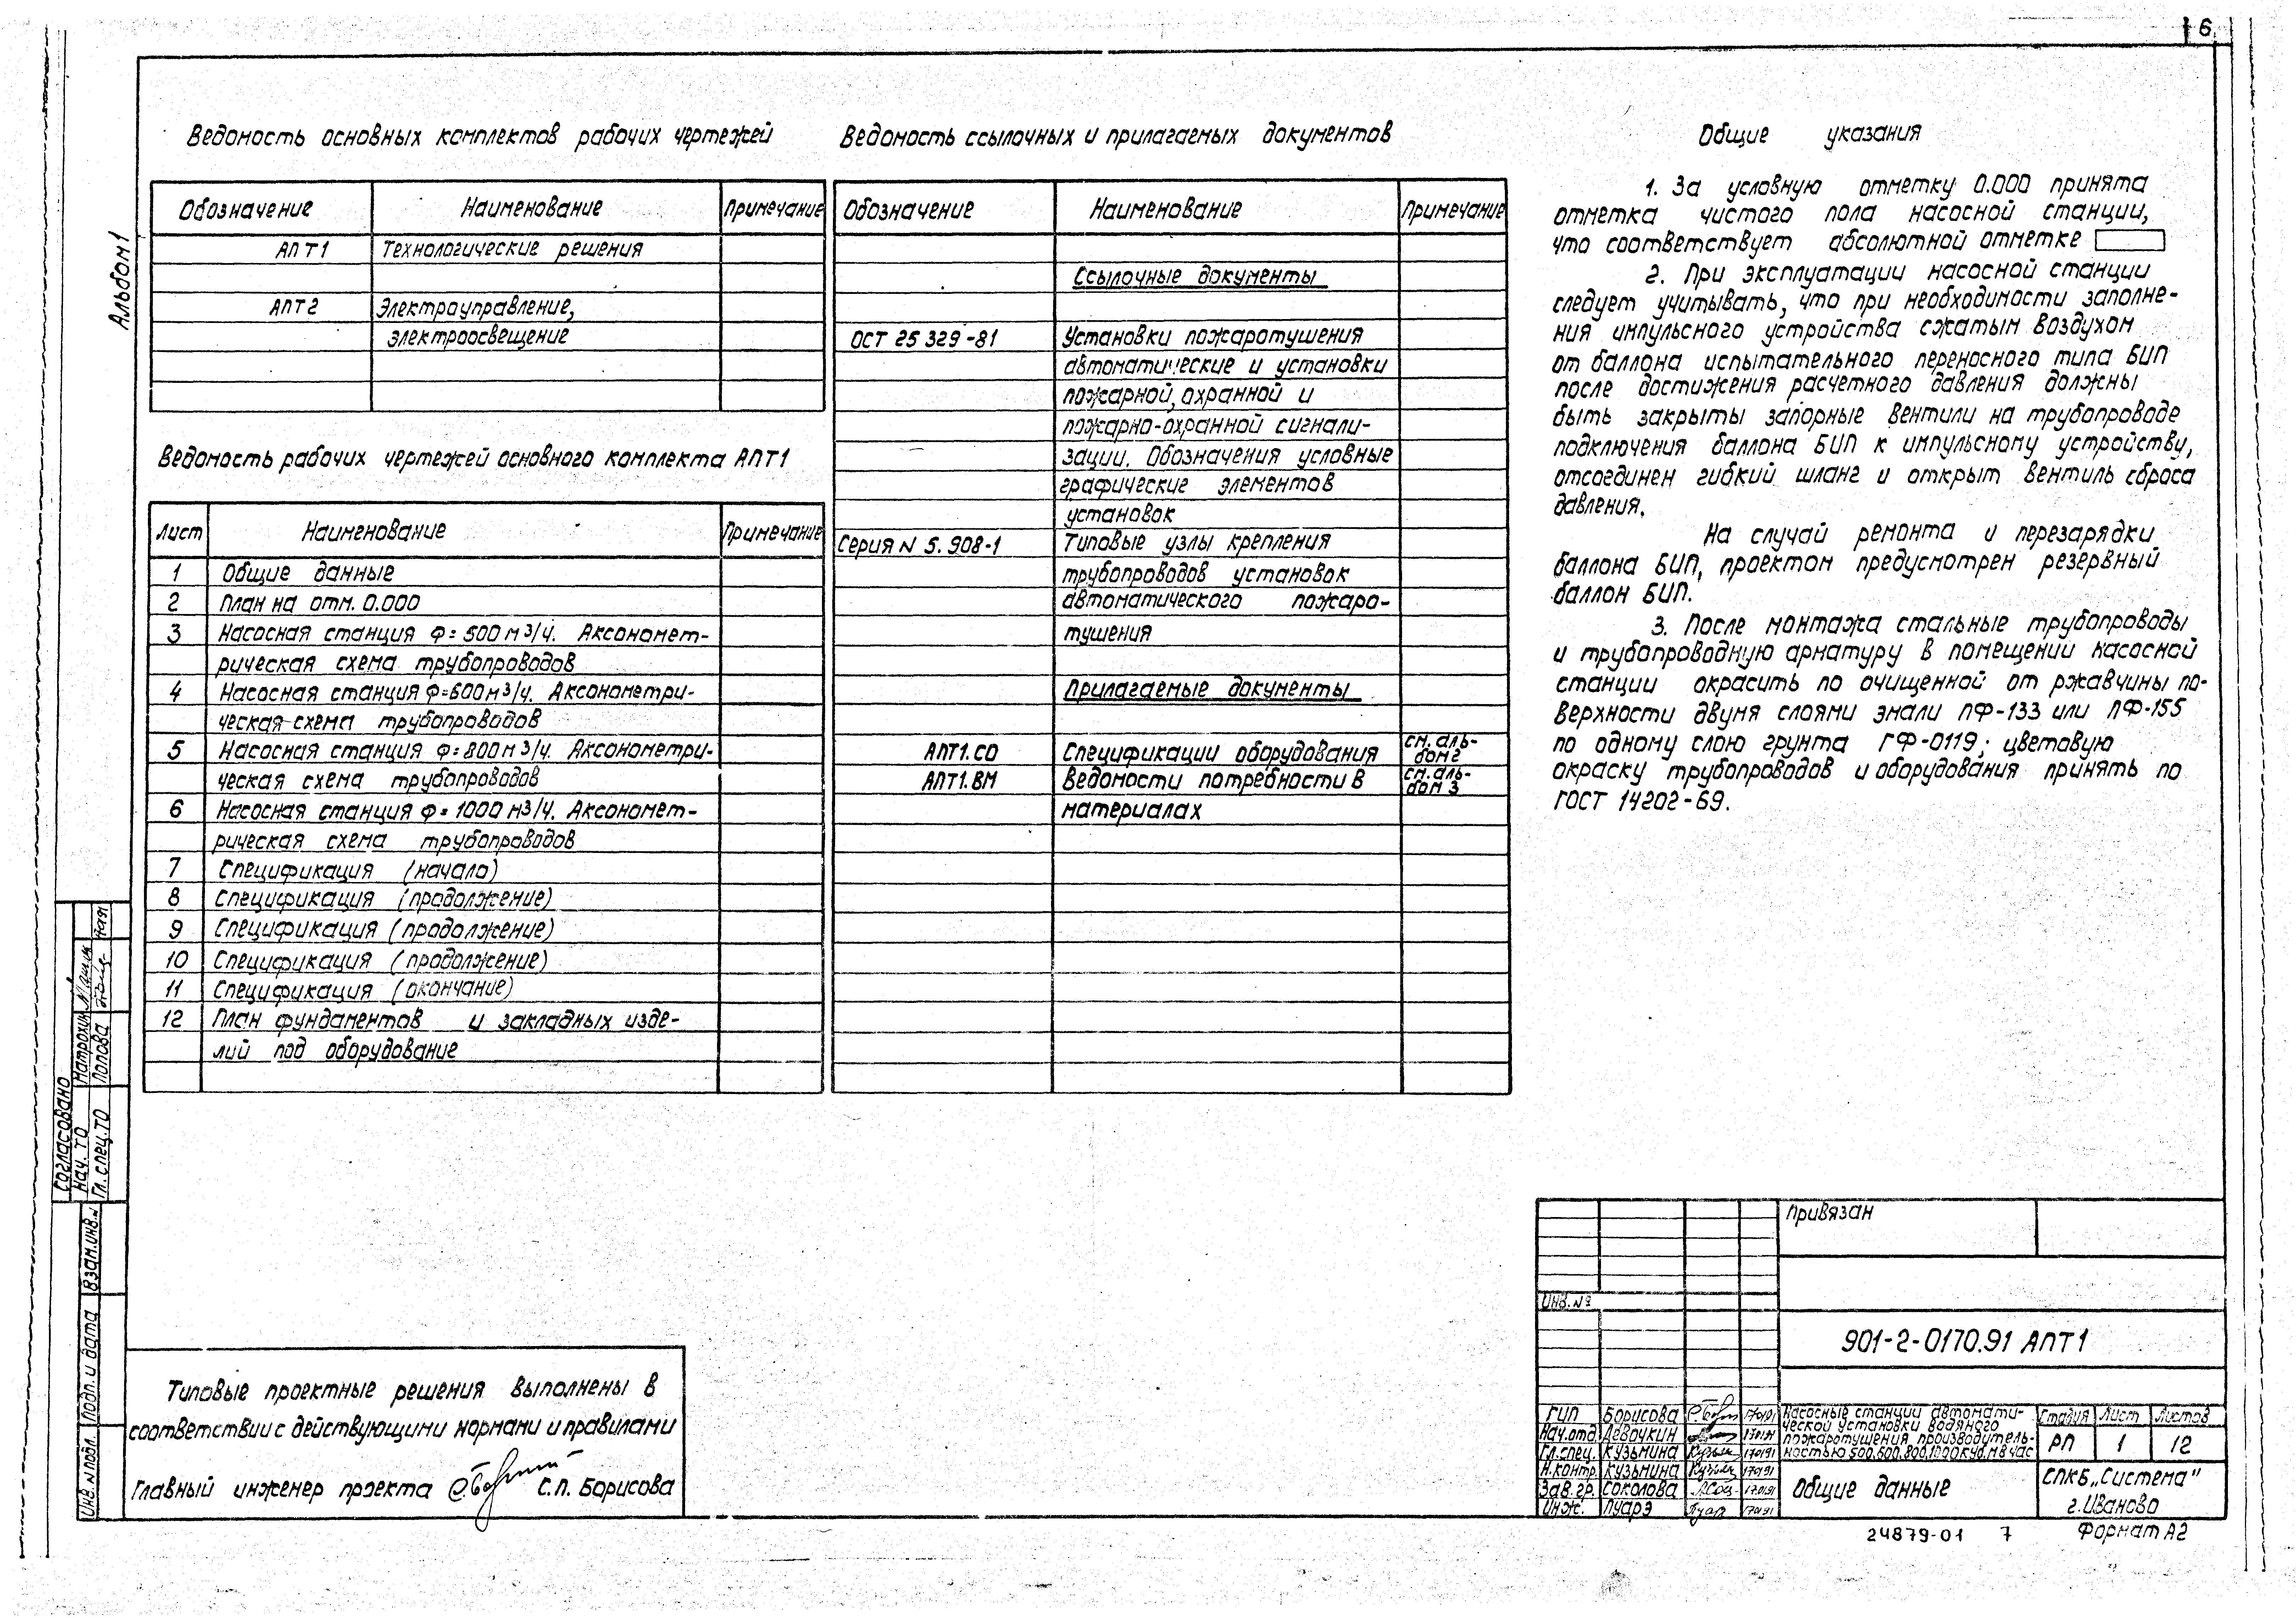 6
Альбом 1
Ведомость основных комплектов рабочих чертежей
Обозначение Наименование Примечание
АПТ1 Технологические решения
АПТ2 Электроуправление,
электроосвещение
Ведомость рабочих чертежей основного комплекта АПТ1
Лист Наименование Примечание
1 Общие данные
2 План на отм. 0.000
3 Насосная станция Ф=500 м3/ч. Аксономет-
рическая схема трубопроводов
4 Насосная станция Ф=600 м3/ч. Аксонометри-
ческая схема трубопроводов
5 Насосная станция Ф=800 м3/ч. Аксонометри-
ческая схема трубопроводов
6 Насосная станция Ф=1000 м3/ч. Аксономет-
рическая схема трубопроводов
7 Спецификация (начало)
8 Спецификация (продолжение)
9 Спецификация (продолжение)
10 Спецификация (продолжение)
11 Спецификация (окончание)
12 План фундаментов и закладных изде-
лий под оборудование
Ведомость ссылочных и прилагаемых документов
Обозначение Наименование Примечание
Ссылочные документы
ОСТ 25 329-81 Установки пожаротушения
автоматические и установки
пожарной, охранной и
пожарно-охранной сигнали-
зации. Обозначения условные
графические элементов
установок
Серия N 5.908-1 Типовые узлы крепления
трубопроводов установок
автоматического пожаро-
тушения
Прилагаемые документы
АПТ1.СО Спецификации оборудования см. аль-
бом 2
АПТ1.ВМ Ведомости потребности в см. аль-
бом 3
материалах
Общие указания
1. За условную отметку 0.000 принята
отметка чистого пола насосной станции,
что соответствует абсолютной отметке
2. При эксплуатации насосной станции
следует учитывать, что при необходимости заполне-
ния импульсного устройства сжатым воздухом
от баллона испытательного переносного типа БИП
после достижения расчетного давления должны
быть закрыты запорные вентили на трубопроводе
подключения баллона БИП к импульсному устройству,
отсоединен гибкий шланг и открыт вентиль сброса
давления.
На случай ремонта и перезарядки
баллона БИП, проектом предусмотрен резервный
баллон БИП.
3. После монтажа стальные трубопроводы
и трубопроводную арматуру в помещении насосной
станции окрасить по очищенной от ржавчины по-
верхности двумя слоями эмали ПФ-133 или ПФ-155
по одному слою грунта ГФ-0119; цветовую
окраску трубопроводов и оборудования принять по
ГОСТ 14202-69.
Согласовано
Нач. ТО Матрохин
Гл. спец. ТО Попова
Взам. инв. N
Подп. и дата
Инв. N подл.
Типовые проектные решения выполнены в
соответствии с действующими нормами и правилами
Главный инженер проекта С.П. Борисова
Привязан
Инв. №
901-2-0170.91 АПТ1
ГИП Борисова 170191
Нач. отд. Девочкин 170191
Гл. спец. Кузьмина 170191
Н. контр. Кузьмина 170191
Зав. гр. Соколова 170191
Инж. Пуарэ 170191
Насосные станции автомати-
ческой установки водяного
пожаротушения производитель-
ностью 500,600,800,1000 куб. м в час
Стадия Лист Листов
РП 1 12
Общие данные
СПКБ „Система"
г. Иваново
24879-01 7 Формат А2